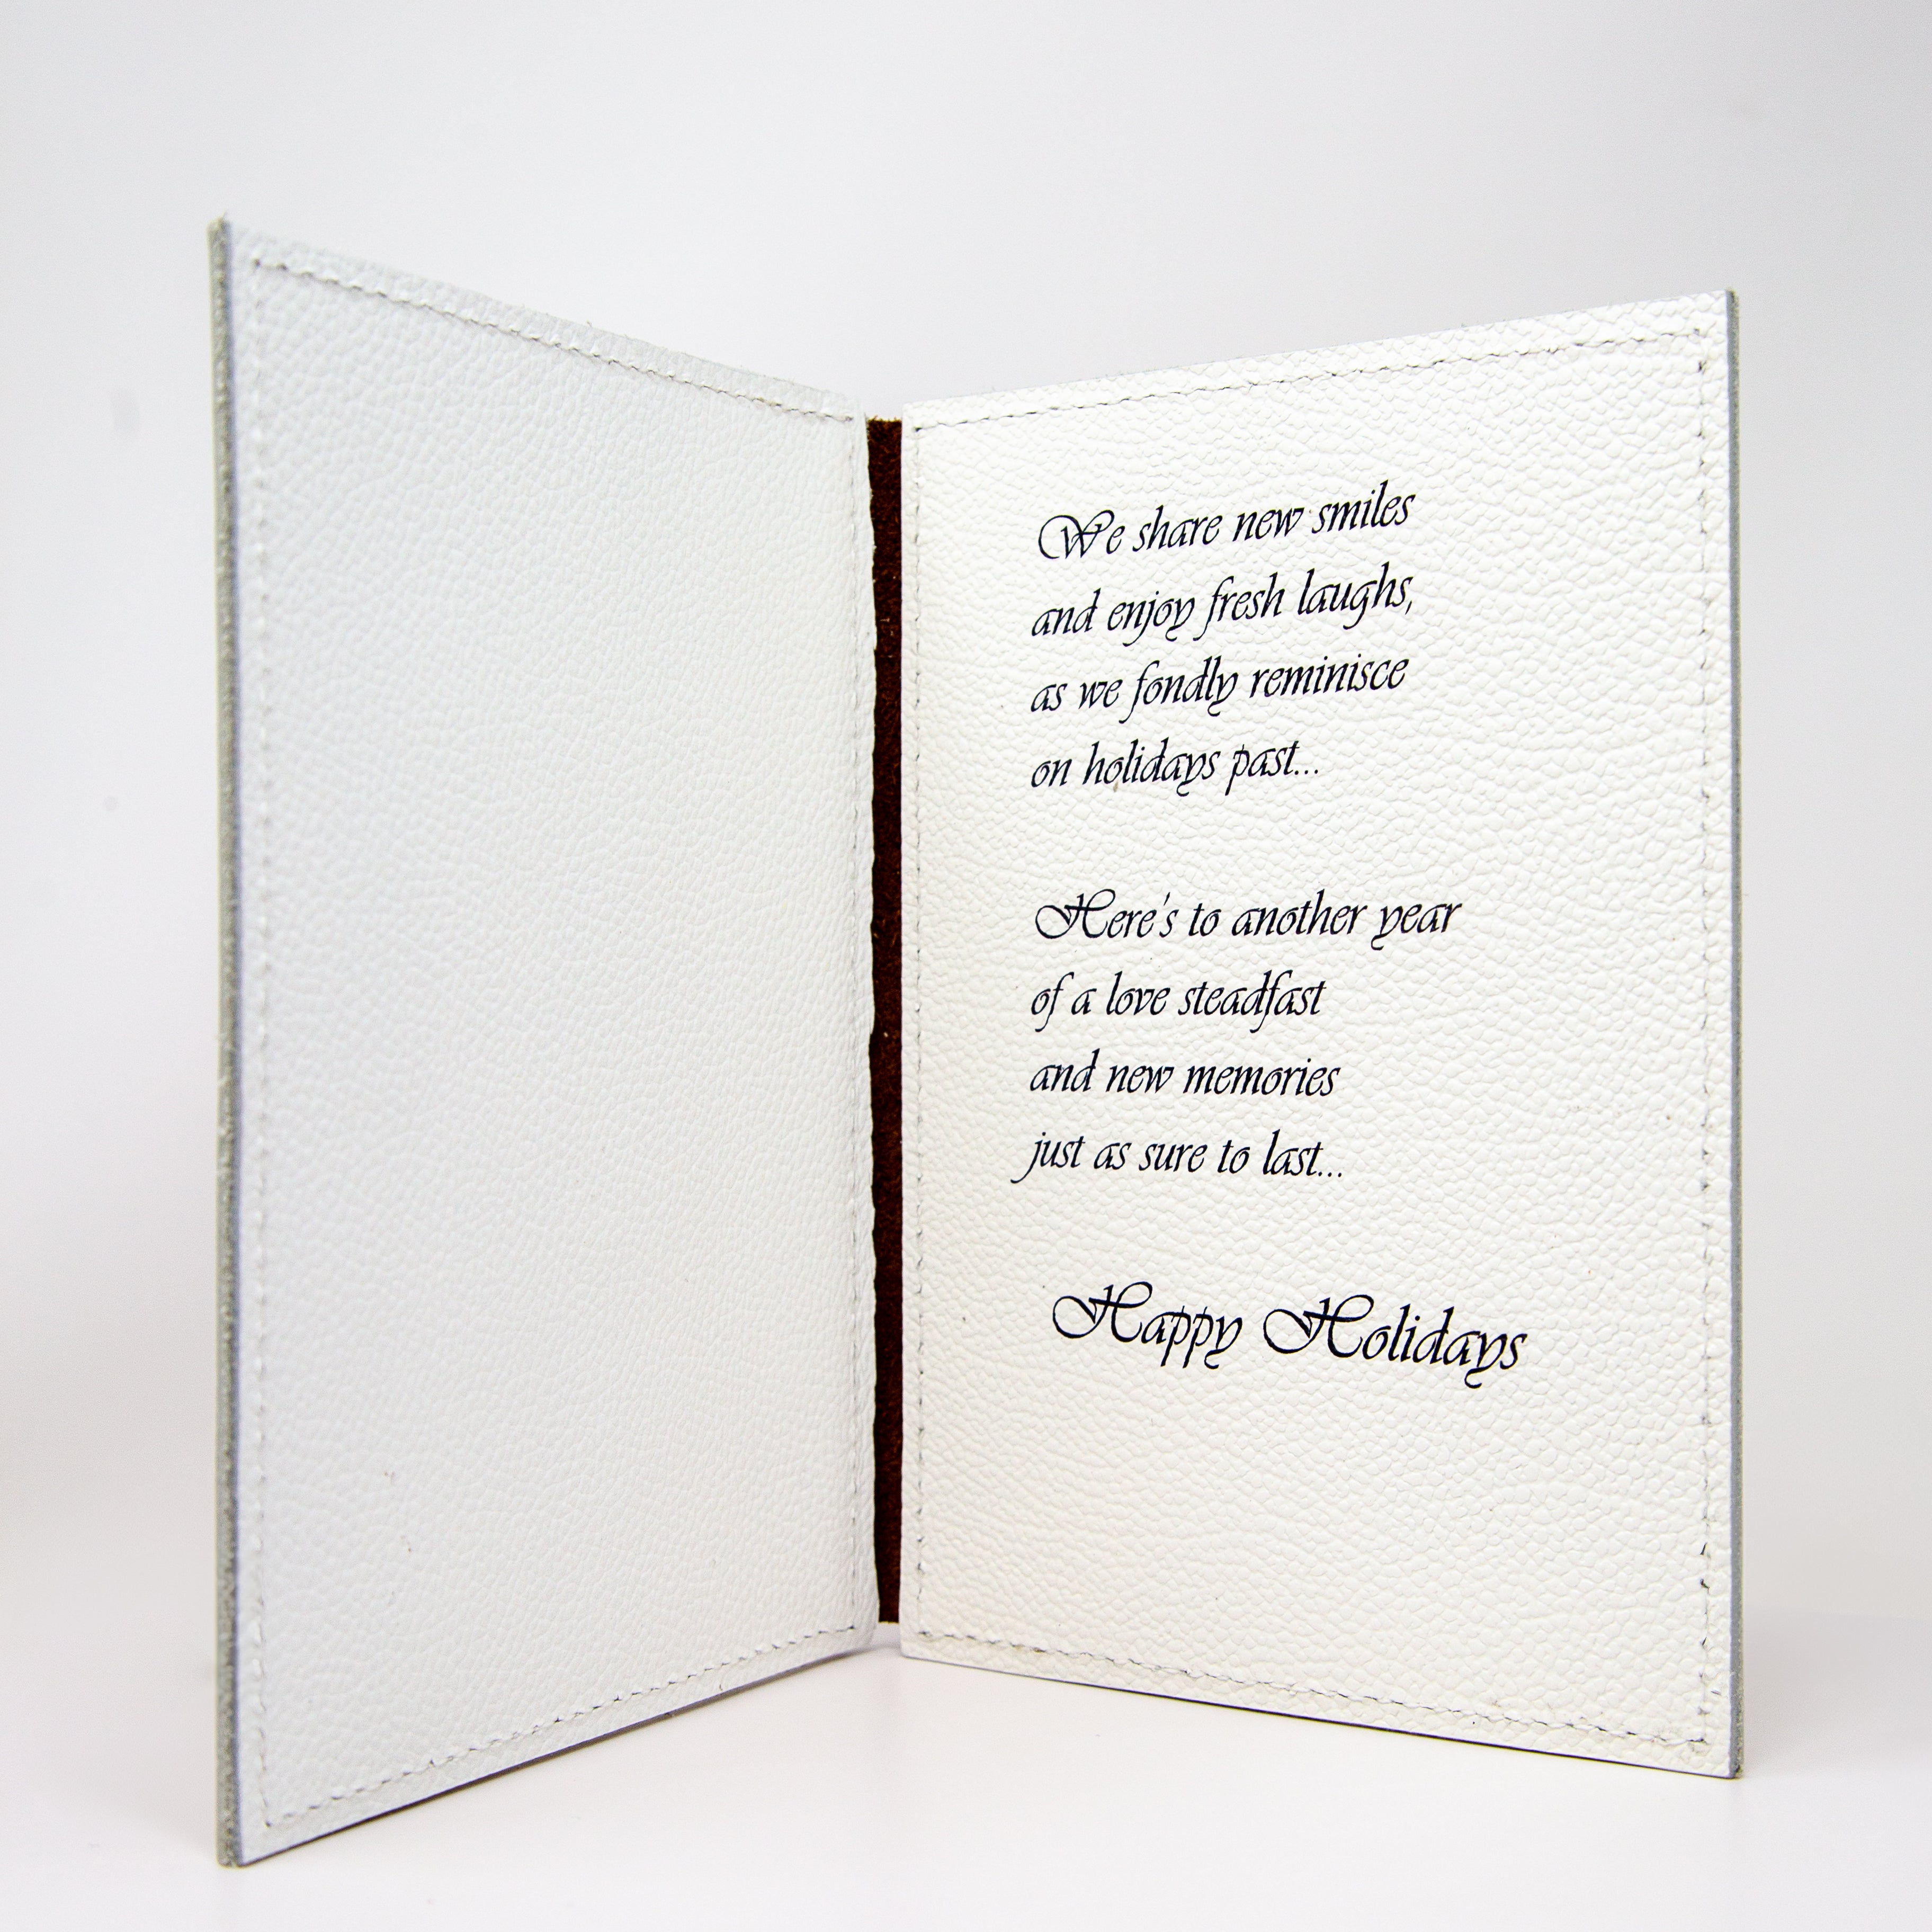 We share new smiles
and enjoy fresh laughs,
as we fondly reminisce
on holidays past...
Here's to another year
of a love steadfast
and new memories
just as sure to last...
Happy Holidays